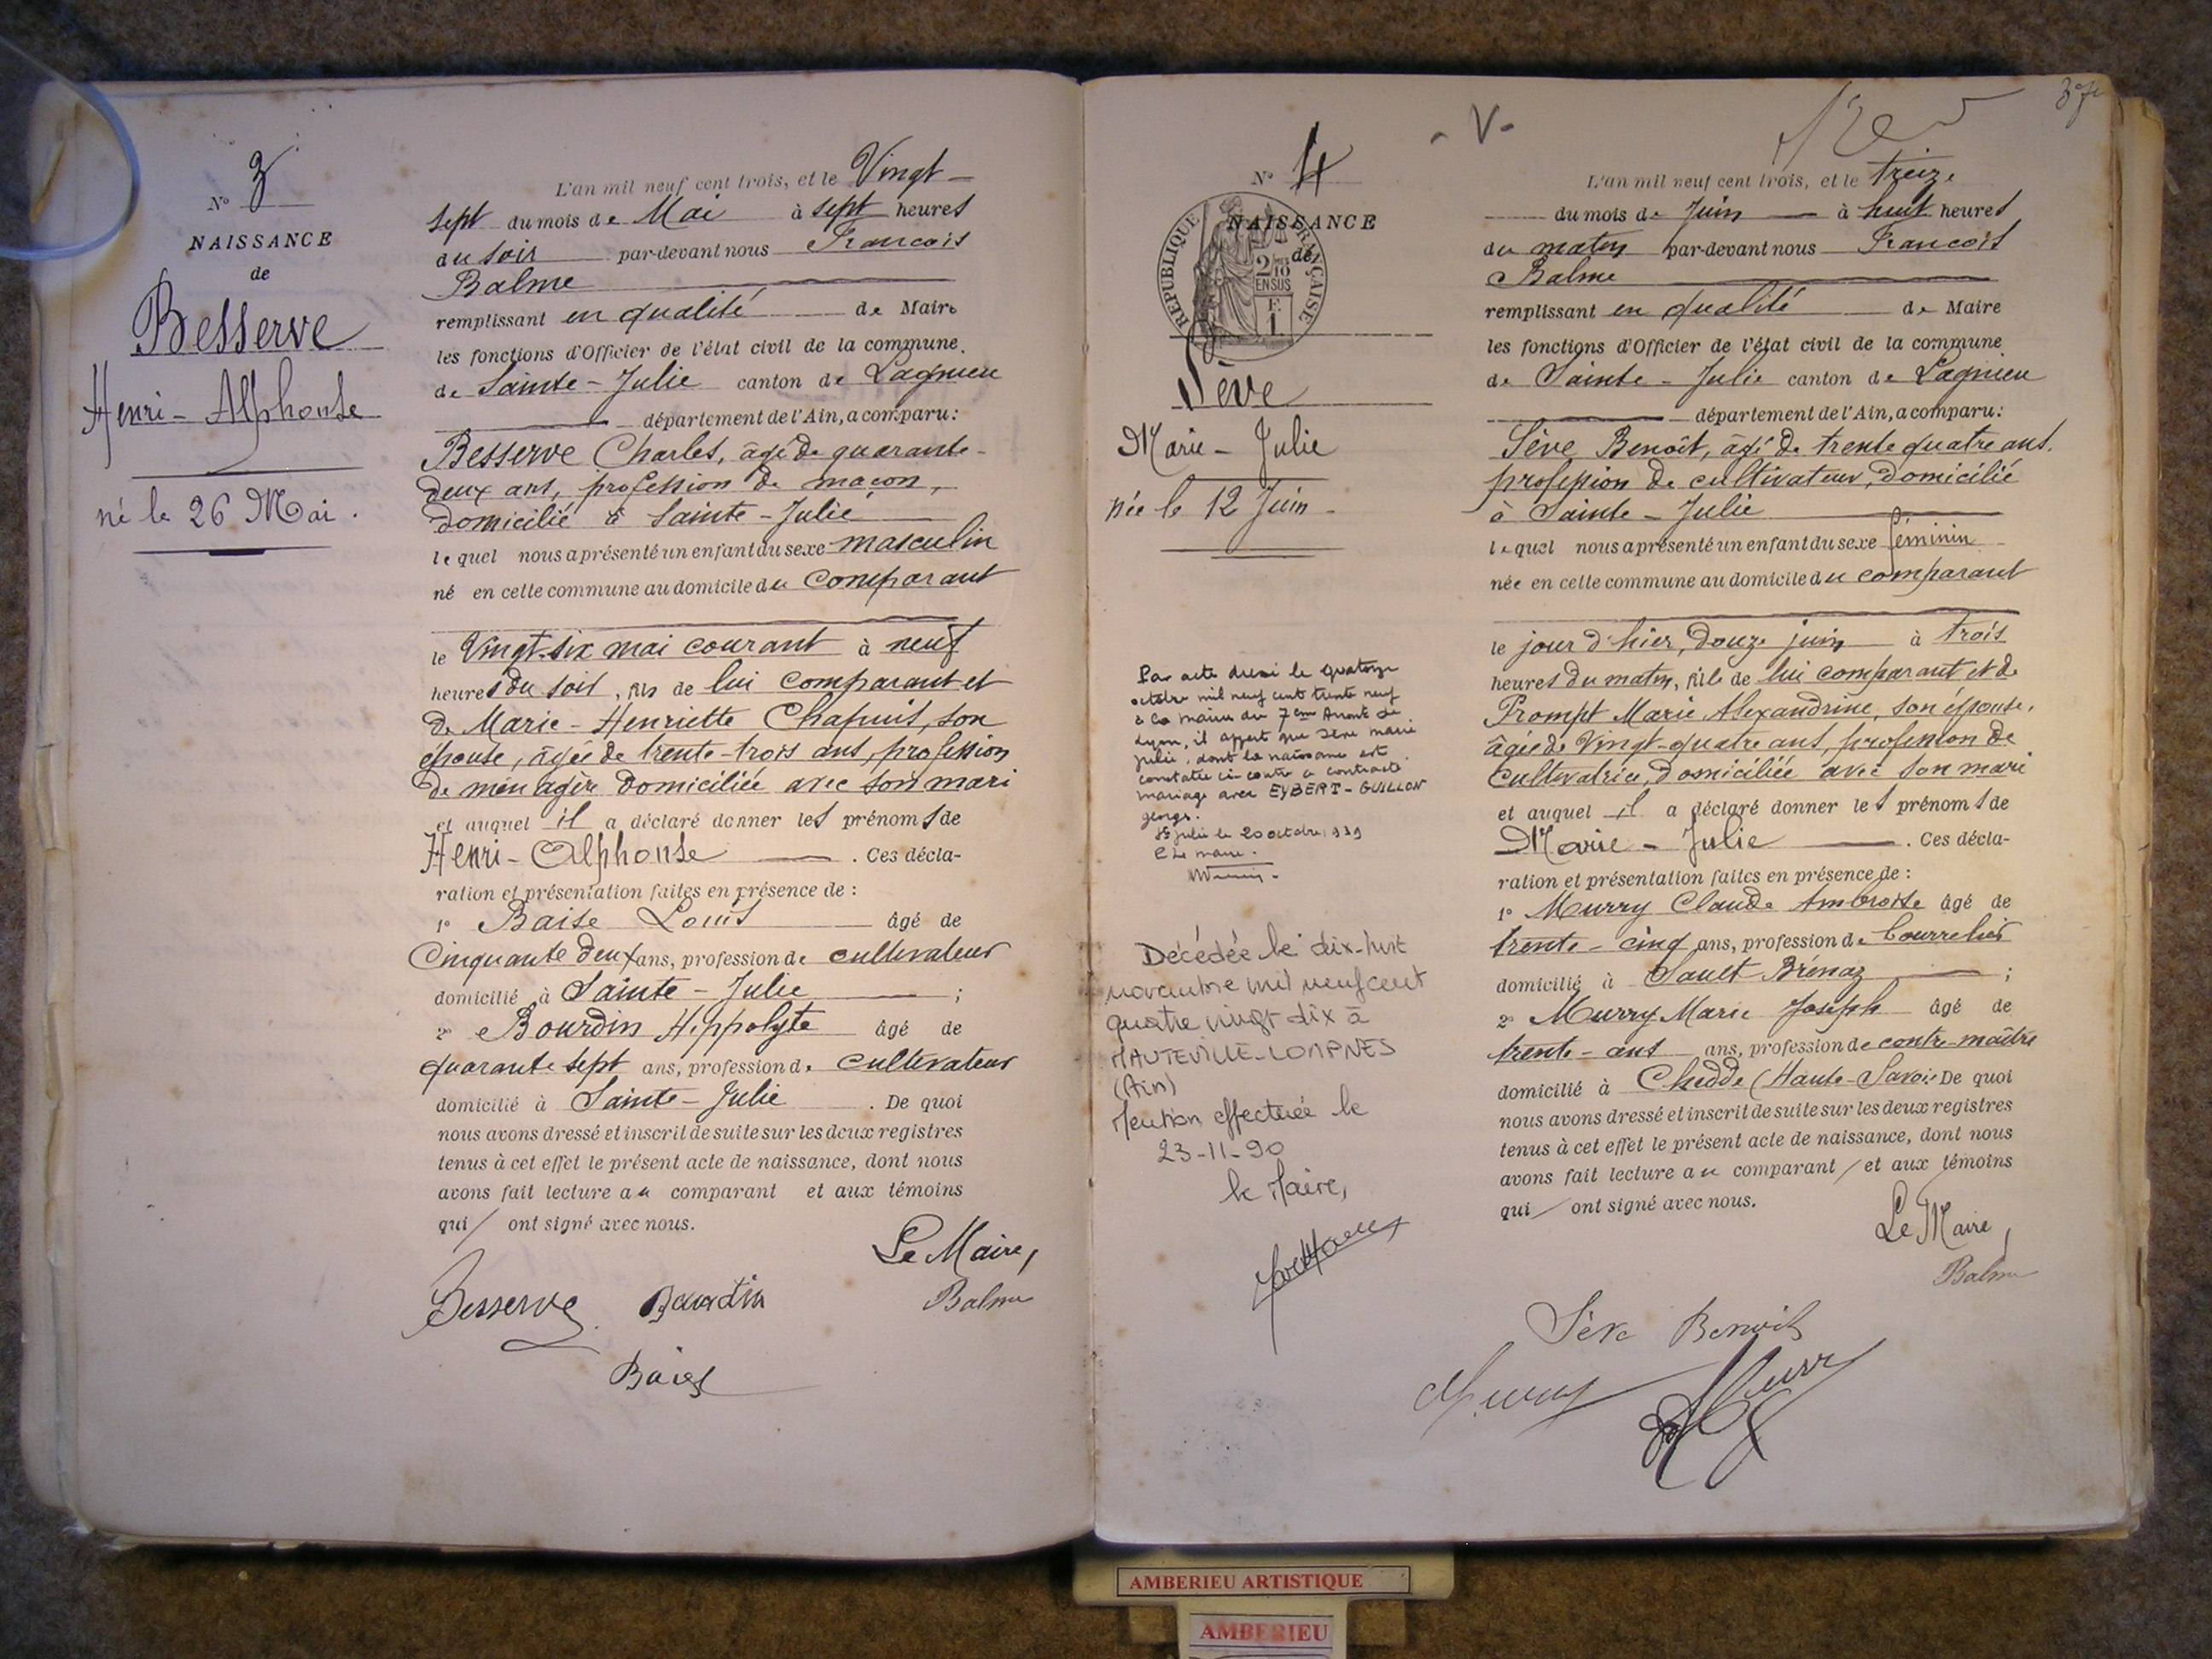 N° 3
NAISSANCE
de
Besserve
Henri - Alphonse
né le 26 Mai.
L'an mil neuf cent trois, et le Vingt-
sept du mois de Mai à sept heures
du soir par-devant nous Francois
Balme
remplissant en qualité de Maire
les fonctions d'Officier de l'état civil de la commune
de Sainte-Julie canton de Lagnieu
département de l'Ain, a comparu:
Besserve Charles, âgé de quarante-
deux ans, profession de maçon,
domicilié à Sainte-Julie
lequel nous a présenté un enfant du sexe masculin
né en cette commune au domicile du comparant
le Vingt-six mai courant à neuf
heures du soir, fils de lui comparant et
de Marie-Henriette Chapuis, son
épouse, âgée de trente-trois ans, profession
de ménagère domiciliée avec son mari
et auquel il a déclaré donner les prénoms de
Henri-Alphonse. Ces décla-
ration et présentation faites en présence de :
1° Baise Louis âgé de
Cinquante deux ans, profession de cultivateur
domicilié à Sainte-Julie ;
2° Bourdin Hippolyte âgé de
quarante sept ans, profession de cultivateur
domicilié à Sainte-Julie. De quoi
nous avons dressé et inscrit de suite sur les deux registres
tenus à cet effet le présent acte de naissance, dont nous
avons fait lecture au comparant et aux témoins
qui ont signé avec nous.
Le Maire,
Besserve Bourdin Balme
Baise
N° 4
NAISSANCE
de
REPUBLIQUE FRANÇAISE
2/10
EN SUS
F
1
Sève
Marie - Julie
née le 12 Juin -
Par acte dressé le quatorze
octobre mil neuf cent trente neuf
à la mairie du 7ème Arront de
Lyon, il appert que Sève Marie
Julie, dont la naissance est
constatée ci-contre a contracté
mariage avec EYBERT-GUILLON
George.
Ste Julie le 20 octobre 1939
Le maire.
Décédée le dix-huit
novembre mil neuf cent
quatre vingt dix à
HAUTEVILLE-LOMPNES
(Ain)
Mention effectuée le
23-11-90
le Maire,
- V -
L'an mil neuf cent trois, et le treize
du mois de Juin à huit heures
du matin par-devant nous Francois
Balme
remplissant en qualité de Maire
les fonctions d'Officier de l'état civil de la commune
de Sainte-Julie canton de Lagnieu
département de l'Ain, a comparu:
Sève Benoît, âgé de trente quatre ans.
profession de cultivateur, domicilié
à Sainte-Julie
lequel nous a présenté un enfant du sexe féminin
née en cette commune au domicile du comparant
le jour d'hier, douze juin à trois
heures du matin, fille de lui comparant et de
Prompt Marie Alexandrine, son épouse,
âgée de Vingt-quatre ans, profession de
Cultivatrice, domiciliée avec son mari
et auquel il a déclaré donner les prénoms de
Marie - Julie. Ces décla-
ration et présentation faites en présence de :
1° Murry Claude Ambroise âgé de
trente-cinq ans, profession de bourrelier
domicilié à Sault Brénaz ;
2° Murry Marie Joseph âgé de
trente-ans ans, profession de contre-maître
domicilié à Chedde (Haute-Savoie De quoi
nous avons dressé et inscrit de suite sur les deux registres
tenus à cet effet le présent acte de naissance, dont nous
avons fait lecture au comparant et aux témoins
qui ont signé avec nous.
Le Maire,
Balme
Sève Benoit
Murry Murry
AMBERIEU ARTISTIQUE
AMBERIEU